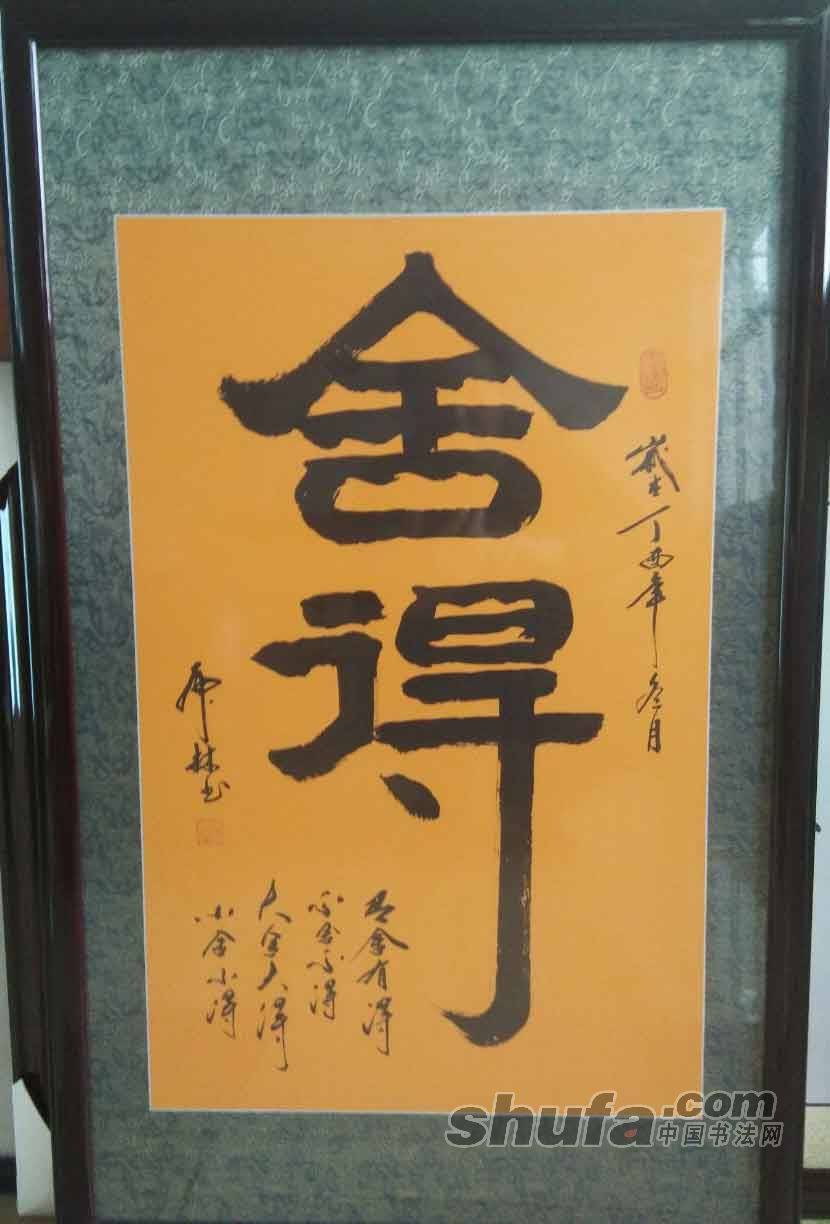 舍得
歲在丁酉年叁月
有舍有得
不舍不得
大舍大得
小舍小得
林书
shufa.com
中国书法网